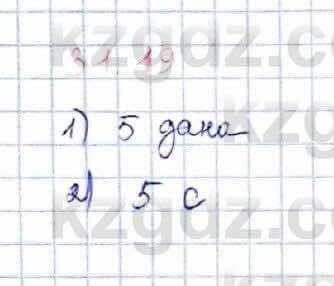 21.19
1) 5 дана
2) 5 с
kzgdz.com